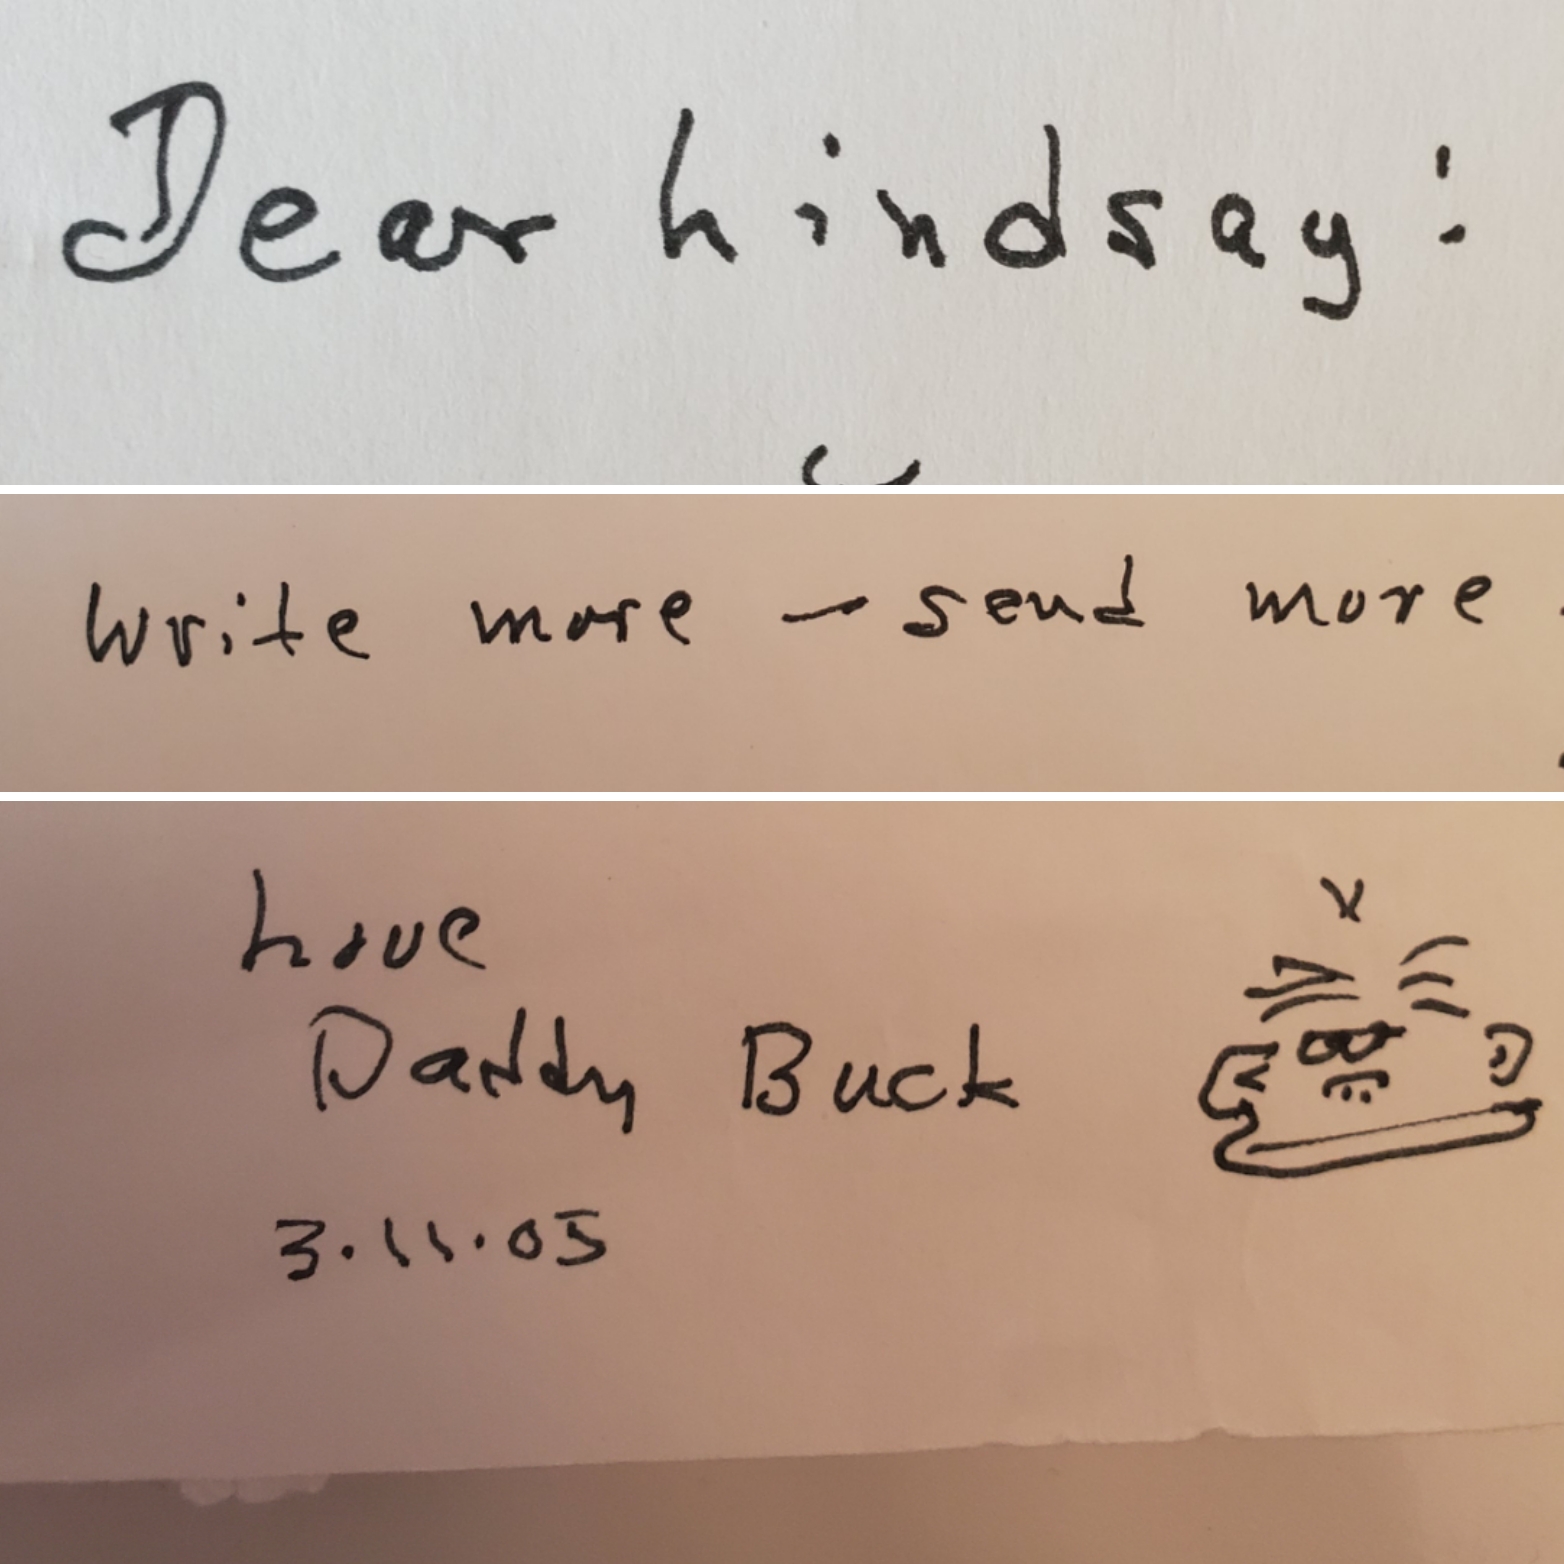 Dear Lindsay:
Write more - send more
Love
Daddy Buck
3.11.05